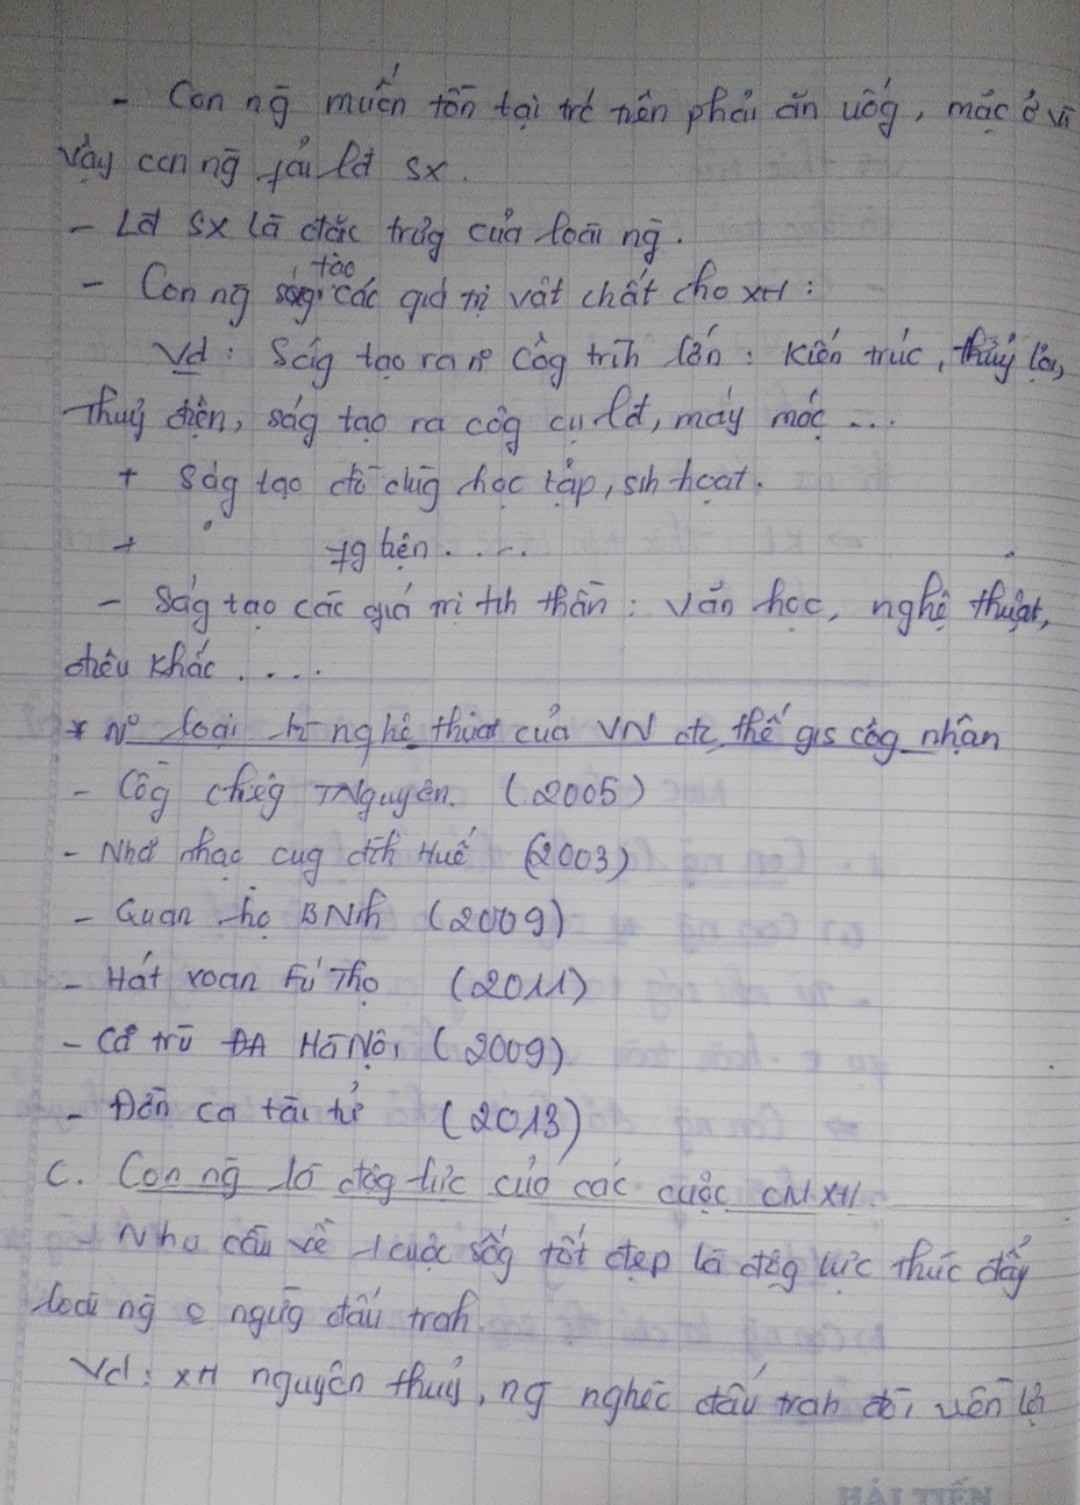 - Con ng̀ muốn tồn tại trc nên phải ăn uốg, mặc ở vì
vậy con ng̀ fải lđ sx.
- Lđ sx là đặc trưg của loài ng̀.
- Con ng̀ ság tạo các giá trị vật chất cho XH:
Vd: Ság tạo ra n° côg trìh lớn: Kiến trúc, thủy lợi,
Thuỷ điện, ság tạo ra côg cụ lđ, máy móc ...
+ Ság tạo đồ dùg học tập, sih hoạt.
+ fg tiện .....
- Ság tạo các giá trị tih thần: Văn học, nghệ thuật,
điêu khắc .....
* N° loại hì nghệ thuật của VN đc thế giới côg nhận
- Cồg chiêg TNguyên. (2005)
- Nhã nhạc cug đìh Huế (2003)
- Quan họ BNih (2009)
- Hát xoan Fú Thọ (2011)
- Ca trù ĐA Hà Nội (2009)
- Đờn ca tài tử (2013)
C. Con ng̀ là độg lực của các cuộc CMXH.
- Nhu cầu về 1 cuộc sốg tốt đẹp là độg lực thúc đẩy
loài ng̀ o ngừg đấu trah.
Vd: XH nguyên thuỷ, ng nghèo đấu trah đòi uền lợi
HẢI TIẾN